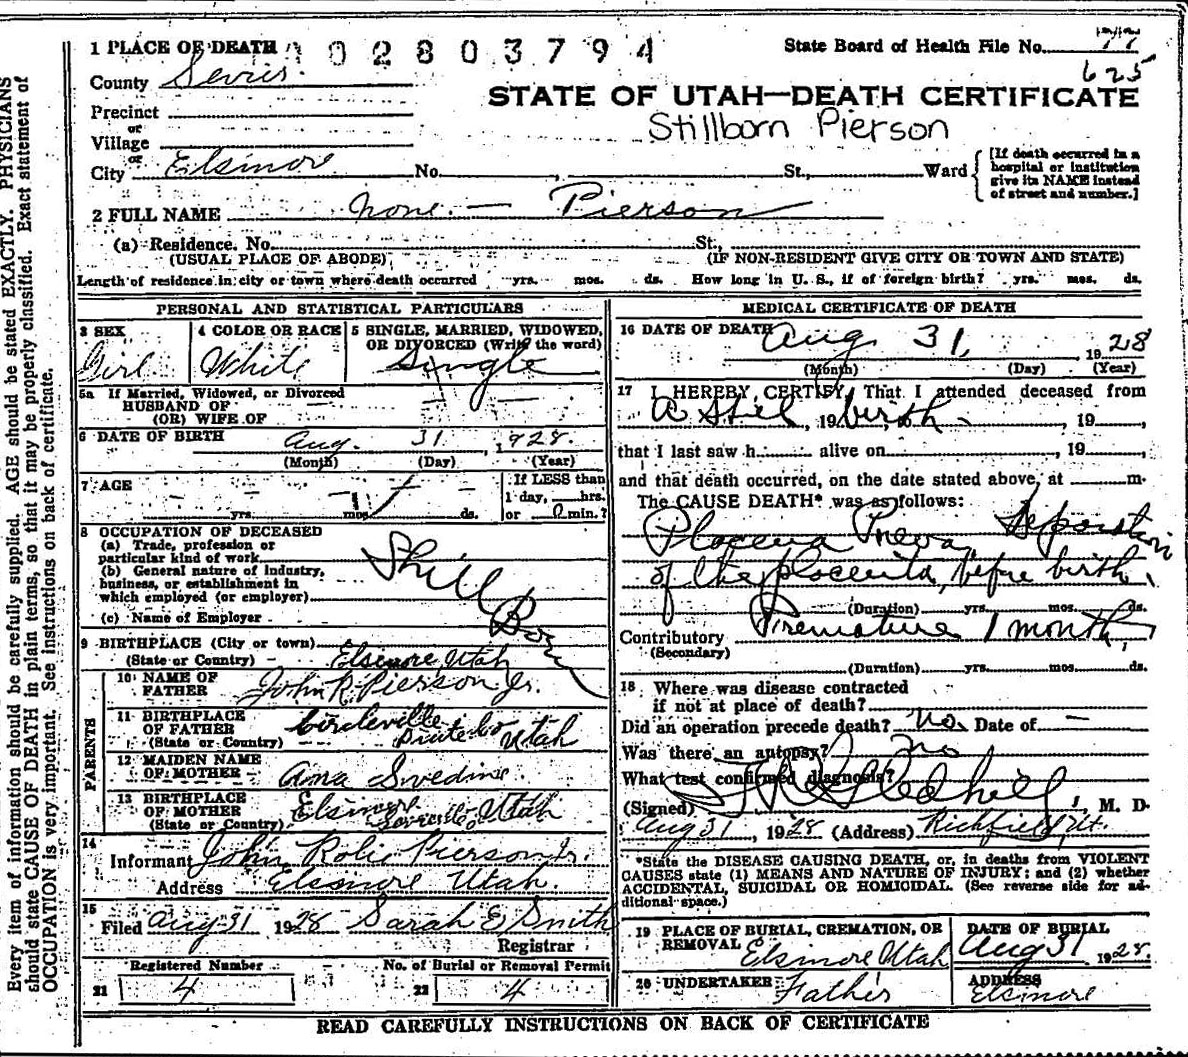 1 PLACE OF DEATH 1 0 2 8 0 3 7 9 4 State Board of Health File No. 77
625
County Sevier
STATE OF UTAH—DEATH CERTIFICATE
Precinct
or
Village
Stillborn Pierson
or
City Elsinore No. St., Ward
[If death occurred in a hospital or institution give its NAME instead of street and number.]
2 FULL NAME None. — Pierson
(a) Residence. No. St.,
(USUAL PLACE OF ABODE) (IF NON-RESIDENT GIVE CITY OR TOWN AND STATE)
Length of residence in city or town where death occurred yrs. mos. ds. How long in U. S., if of foreign birth? yrs. mos. ds.
PERSONAL AND STATISTICAL PARTICULARS
3 SEX
Girl
4 COLOR OR RACE
White
5 SINGLE, MARRIED, WIDOWED,
OR DIVORCED (Write the word)
Single
5a If Married, Widowed, or Divorced
HUSBAND OF
(OR) WIFE OF
6 DATE OF BIRTH Aug. 31, 1928.
(Month) (Day) (Year)
7 AGE
yrs. mos. ds.
If LESS than
1 day, hrs.
or 0 min.?
8 OCCUPATION OF DECEASED
(a) Trade, profession or
particular kind of work
(b) General nature of industry,
business, or establishment in
which employed (or employer)
(c) Name of Employer
Still Born
9 BIRTHPLACE (City or town)
(State or Country) Elsinore Utah
PARENTS
10 NAME OF
FATHER John R. Pierson Jr.
11 BIRTHPLACE
OF FATHER
(State or Country) Circleville Piute Co Utah
12 MAIDEN NAME
OF MOTHER
13 BIRTHPLACE
OF MOTHER
(State or Country) Elsinore Sevier Co. Utah
14
Informant John Pierson Jr.
Address Elsinore Utah.
15
Filed Aug 31 1928 Sarah E Smith
Registrar
Registered Number No. of Burial or Removal Permit
21 4 22 4
MEDICAL CERTIFICATE OF DEATH
16 DATE OF DEATH Aug. 31, 1928
(Month) (Day) (Year)
17 I HEREBY CERTIFY, That I attended deceased from
A Still, 19 birth, to - 19,
that I last saw h alive on, 19,
and that death occurred, on the date stated above, at m.
The CAUSE DEATH* was as follows:
Placena Previa, Seperation
of the placenta, before birth,
(Duration) yrs. mos. ds.
Contributory Premature 1 month,
(Secondary)
(Duration) yrs. mos. ds.
18 Where was disease contracted
if not at place of death?
Did an operation precede death? No. Date of —
Was there an autopsy? No
What test confirmed diagnosis?
(Signed) Gledhill, M. D.
Aug 31, 1928 (Address) Richfield, Ut.
*State the DISEASE CAUSING DEATH, or, in deaths from VIOLENT
CAUSES state (1) MEANS AND NATURE OF INJURY; and (2) whether
ACCIDENTAL, SUICIDAL OR HOMICIDAL. (See reverse side for ad-
ditional space.)
19 PLACE OF BURIAL, CREMATION, OR
REMOVAL Elsinore Utah
DATE OF BURIAL
Aug 31 1928.
20 UNDERTAKER Father
ADDRESS
Elsinore
READ CAREFULLY INSTRUCTIONS ON BACK OF CERTIFICATE
Every item of information should be carefully supplied. AGE should be stated EXACTLY. PHYSICIANS
should state CAUSE OF DEATH in plain terms, so that it may be properly classified. Exact statement of
OCCUPATION is very important. See instructions on back of certificate.